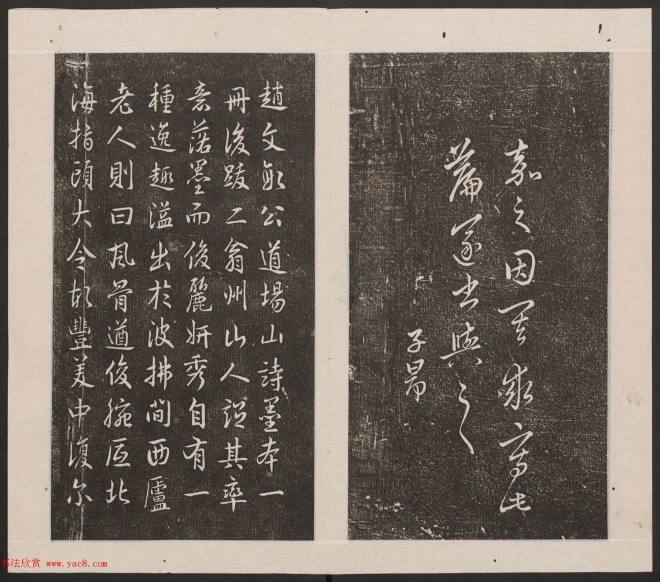 嘉之因其求寫此
篇遂書與之
子昂
趙文敏公道場山詩墨本一
冊後跋二翁州山人謂其率
意落墨而俊麗妍秀自有一
種逸趣溢出於波拂間西廬
老人則曰風骨遒俊腕區北
海指頭大令故豐美中復尓
书法欣赏 www.yac8.com